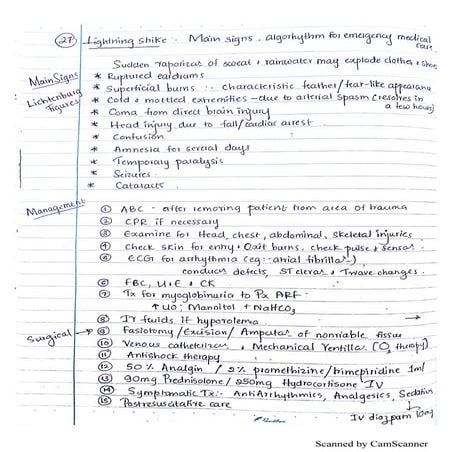 27 Lightning Shike :- Main signs, algorhythm for emergency medical care
Sudden vaporizes of sweat & rainwater may explode clothes & shoes
Main Signs
* Ruptured eardrums
Lichtenburg Figures
* Superficial burns :- characteristic feather/fern-like appearance
* Cold & mottled extremities - due to arterial spasm (resolves in a few hours)
* Coma from direct brain injury
* Head injury due to fall/cardiac arrest
* Confusion
* Amnesia for several days
* Temporary paralysis
* Seizures
* Cataracts
Management
① ABC - after removing patient from area of trauma
② CPR if necessary
③ Examine for Head, chest, abdominal, skeletal injuries
④ Check skin for entry + exit burns, check pulse & sensor.
⑤ ECG for arrhythmia (eg: atrial fibrillat~)
conduct defects, ST elevat & T wave changes.
⑥ FBC, U+E + CK
⑦ Tx for myoglobinuria to Px ARF -
↑ UO; Mannitol + NaHCO3
⑧ IV fluids if hypovolema
Surgical
⑨ Fasiotomy/Excision/Amputat of nonviable tissue
⑩ Venous catheterizat & Mechanical Ventillat (O2 therapy)
⑪ Antishock therapy
⑫ 50% Analgin / 2% promethizine/trimepiridine 1ml
⑬ 90mg Prednisolone/250mg Hydrocortisone IV
⑭ Symptomatic Tx:- AntiArrhythmics, Analgesics, Sedativs
IV diazpam 10mg
⑮ Postresuscitative care
Scanned by CamScanner